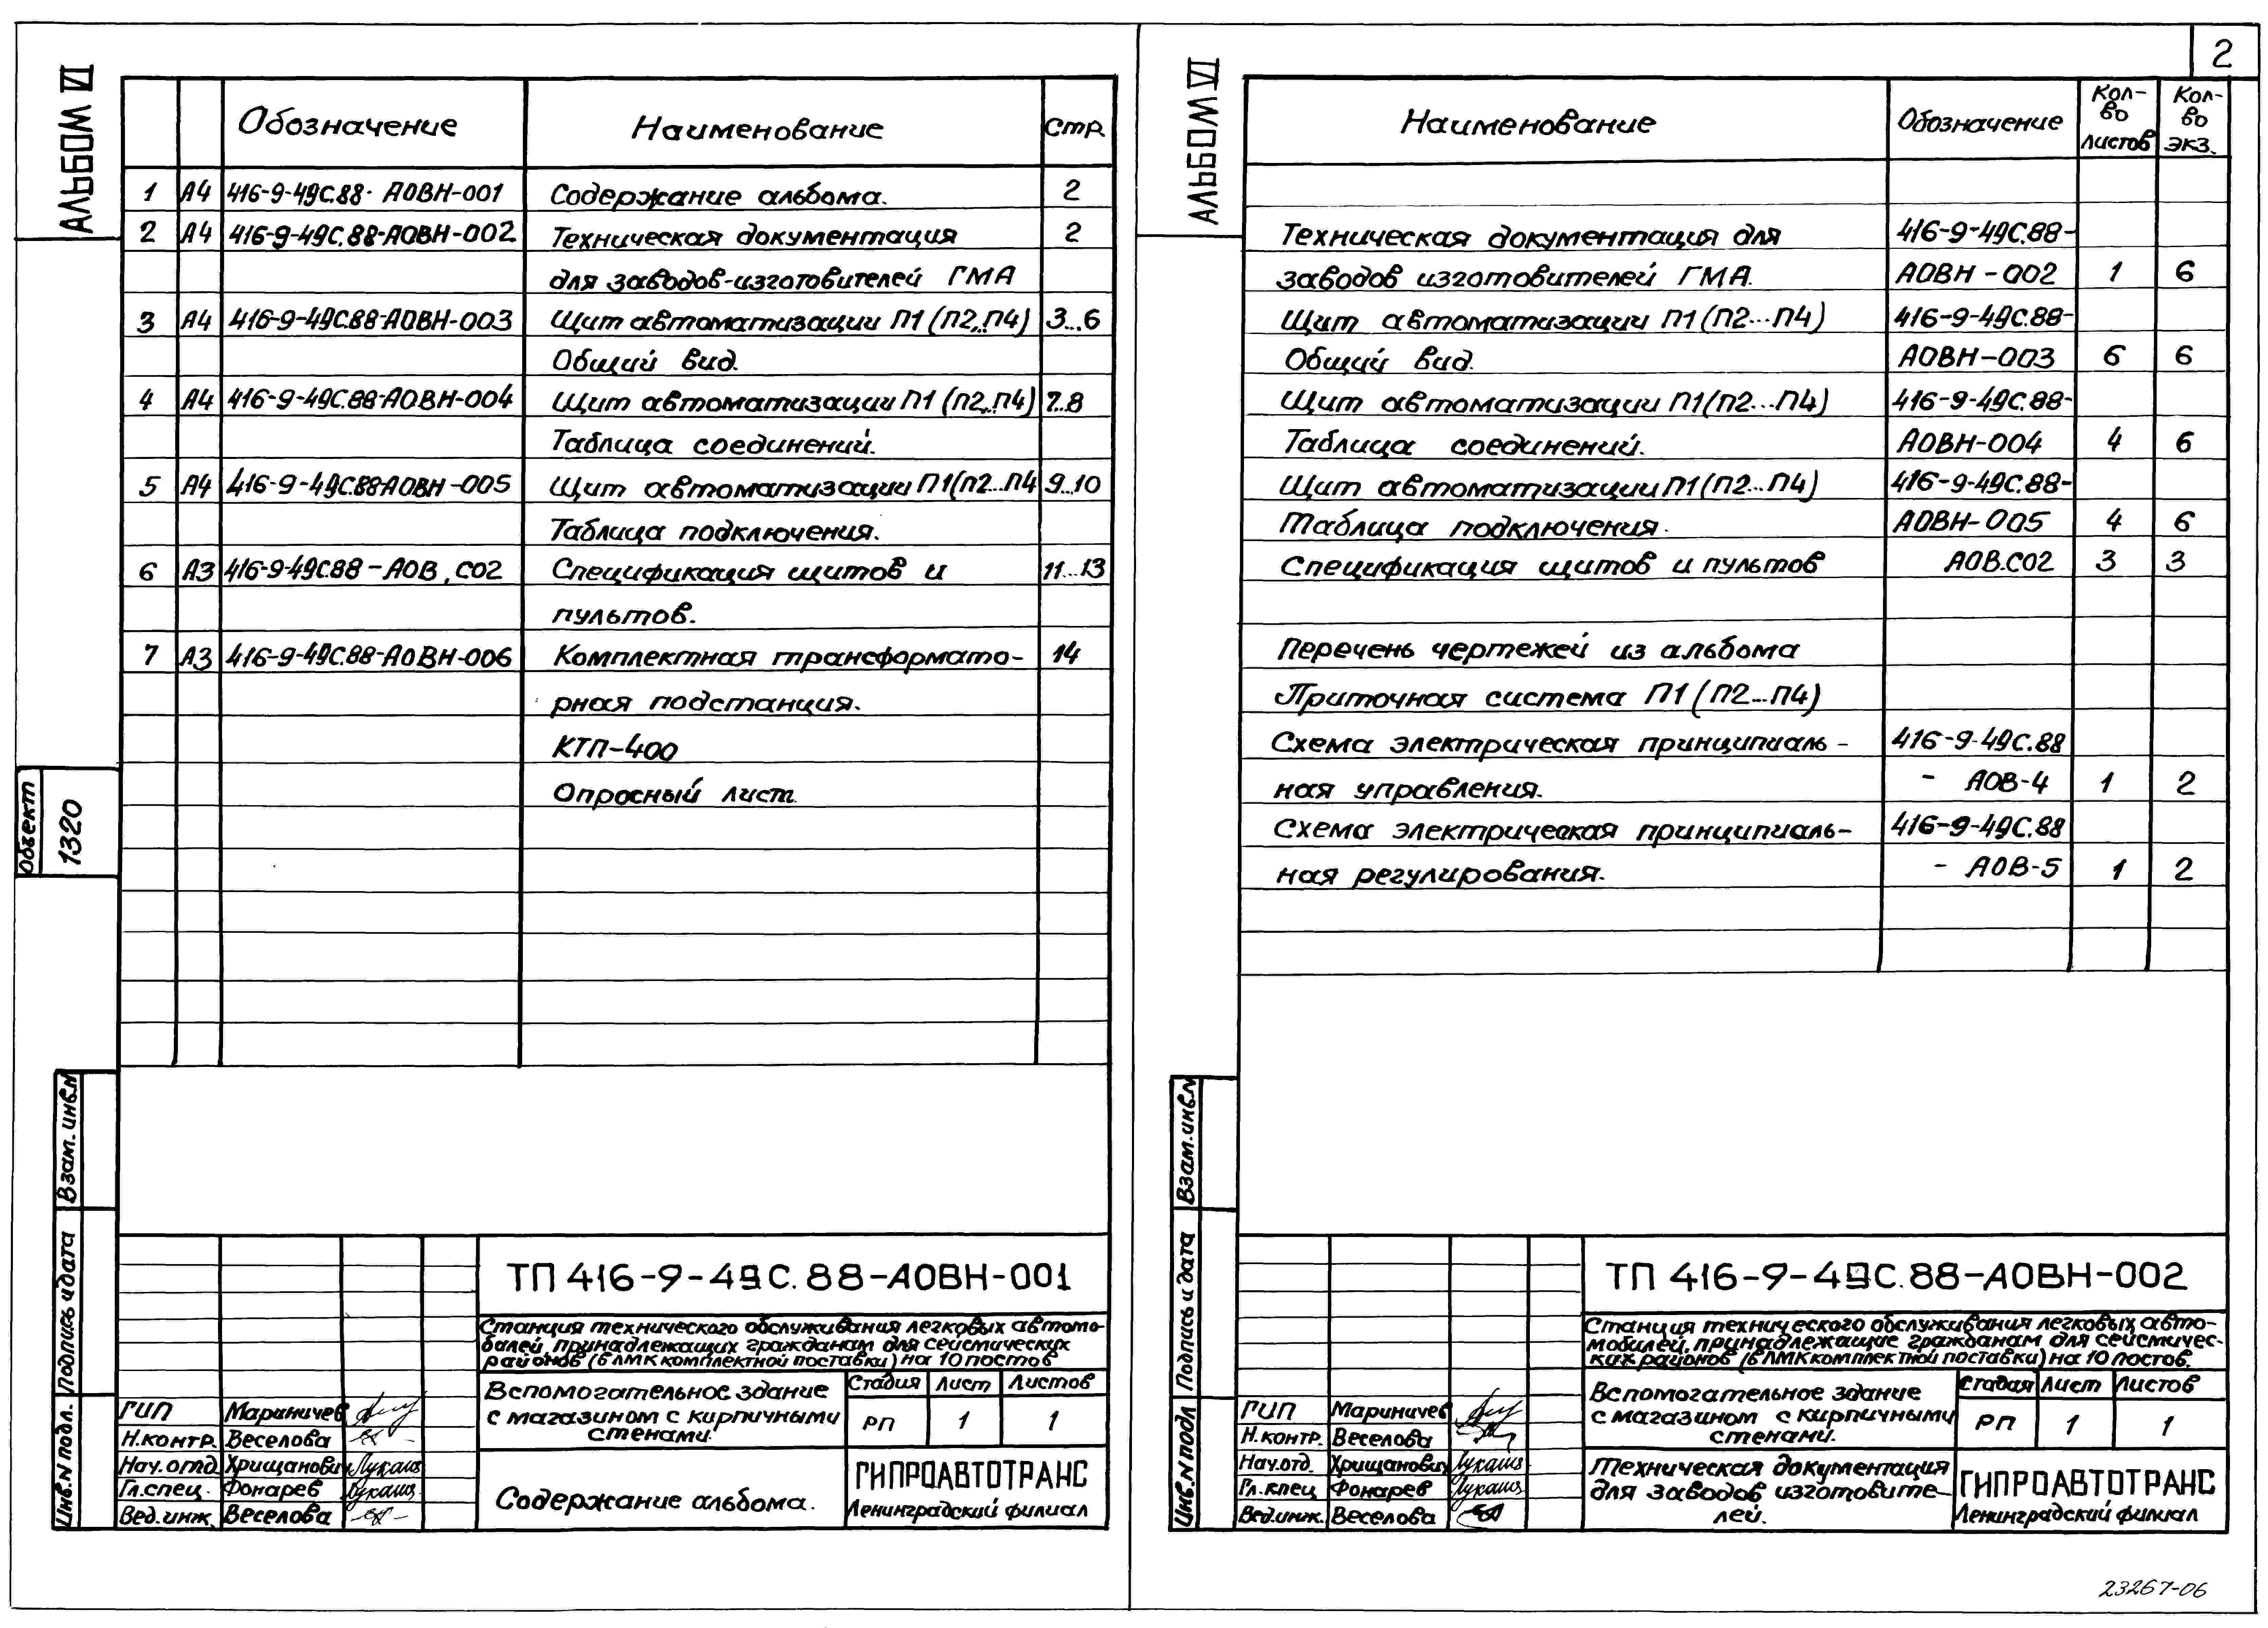 2
АЛЬБОМ VI
Обозначение Наименование Стр.
1 А4 416-9-49С.88-АОВН-001 Содержание альбома. 2
2 А4 416-9-49С.88-АОВН-002 Техническая документация 2
для заводов-изготовителей ГМА
3 А4 416-9-49С.88-АОВН-003 Щит автоматизации П1(П2...П4) 3...6
Общий вид.
4 А4 416-9-49С.88-АОВН-004 Щит автоматизации П1(П2...П4) 7...8
Таблица соединений.
5 А4 416-9-49С.88-АОВН-005 Щит автоматизации П1(П2...П4 9...10
Таблица подключения.
6 А3 416-9-49С.88-АОВ.С02 Спецификация щитов и 11...13
пультов.
7 А3 416-9-49С.88-АОВН-006 Комплектная трансформато- 14
рная подстанция.
КТП-400
Опросный лист.
Объект
1320
Взам. инв.N
Подпись и дата
Инв.N подл.
ТП 416-9-49С.88-АОВН-001
Станция технического обслуживания легковых автомо-
билей, принадлежащих гражданам для сейсмических
районов (в ЛМК комплектной поставки) на 10 постов
Вспомогательное здание
с магазином с кирпичными
стенами.
Стадия Лист Листов
РП 1 1
ГИП Мариничев
Н.контр. Веселова
Нач.отд. Хрищанович
Гл.спец. Фонарев
Вед.инж. Веселова
Содержание альбома.
ГИПРОАВТОТРАНС
Ленинградский филиал
АЛЬБОМ VI
Наименование Обозначение Кол-во листов Кол-во экз.
Техническая документация для 416-9-49С.88-
заводов изготовителей ГМА. АОВН-002 1 6
Щит автоматизации П1(П2...П4) 416-9-49С.88-
Общий вид. АОВН-003 6 6
Щит автоматизации П1(П2...П4) 416-9-49С.88-
Таблица соединений. АОВН-004 4 6
Щит автоматизации П1(П2...П4) 416-9-49С.88-
Таблица подключения. АОВН-005 4 6
Спецификация щитов и пультов АОВ.С02 3 3
Перечень чертежей из альбома
Приточная система П1(П2...П4)
Схема электрическая принципиаль- 416-9-49С.88
ная управления. - АОВ-4 1 2
Схема электрическая принципиаль- 416-9-49С.88
ная регулирования. - АОВ-5 1 2
Взам.инв.N
Подпись и дата
Инв.N подл
ТП 416-9-49С.88-АОВН-002
Станция технического обслуживания легковых авто-
мобилей, принадлежащие гражданам для сейсмичес-
ких районов (в ЛМК комплектной поставки) на 10 постов.
Вспомогательное здание
с магазином с кирпичными
стенами.
Стадия Лист Листов
РП 1 1
ГИП Мариничев
Н.контр. Веселова
Нач.отд. Хрищанович
Гл.спец Фонарев
Вед.инж. Веселова
Техническая документация
для заводов изготовите-
лей.
ГИПРОАВТОТРАНС
Ленинградский филиал
23267-06